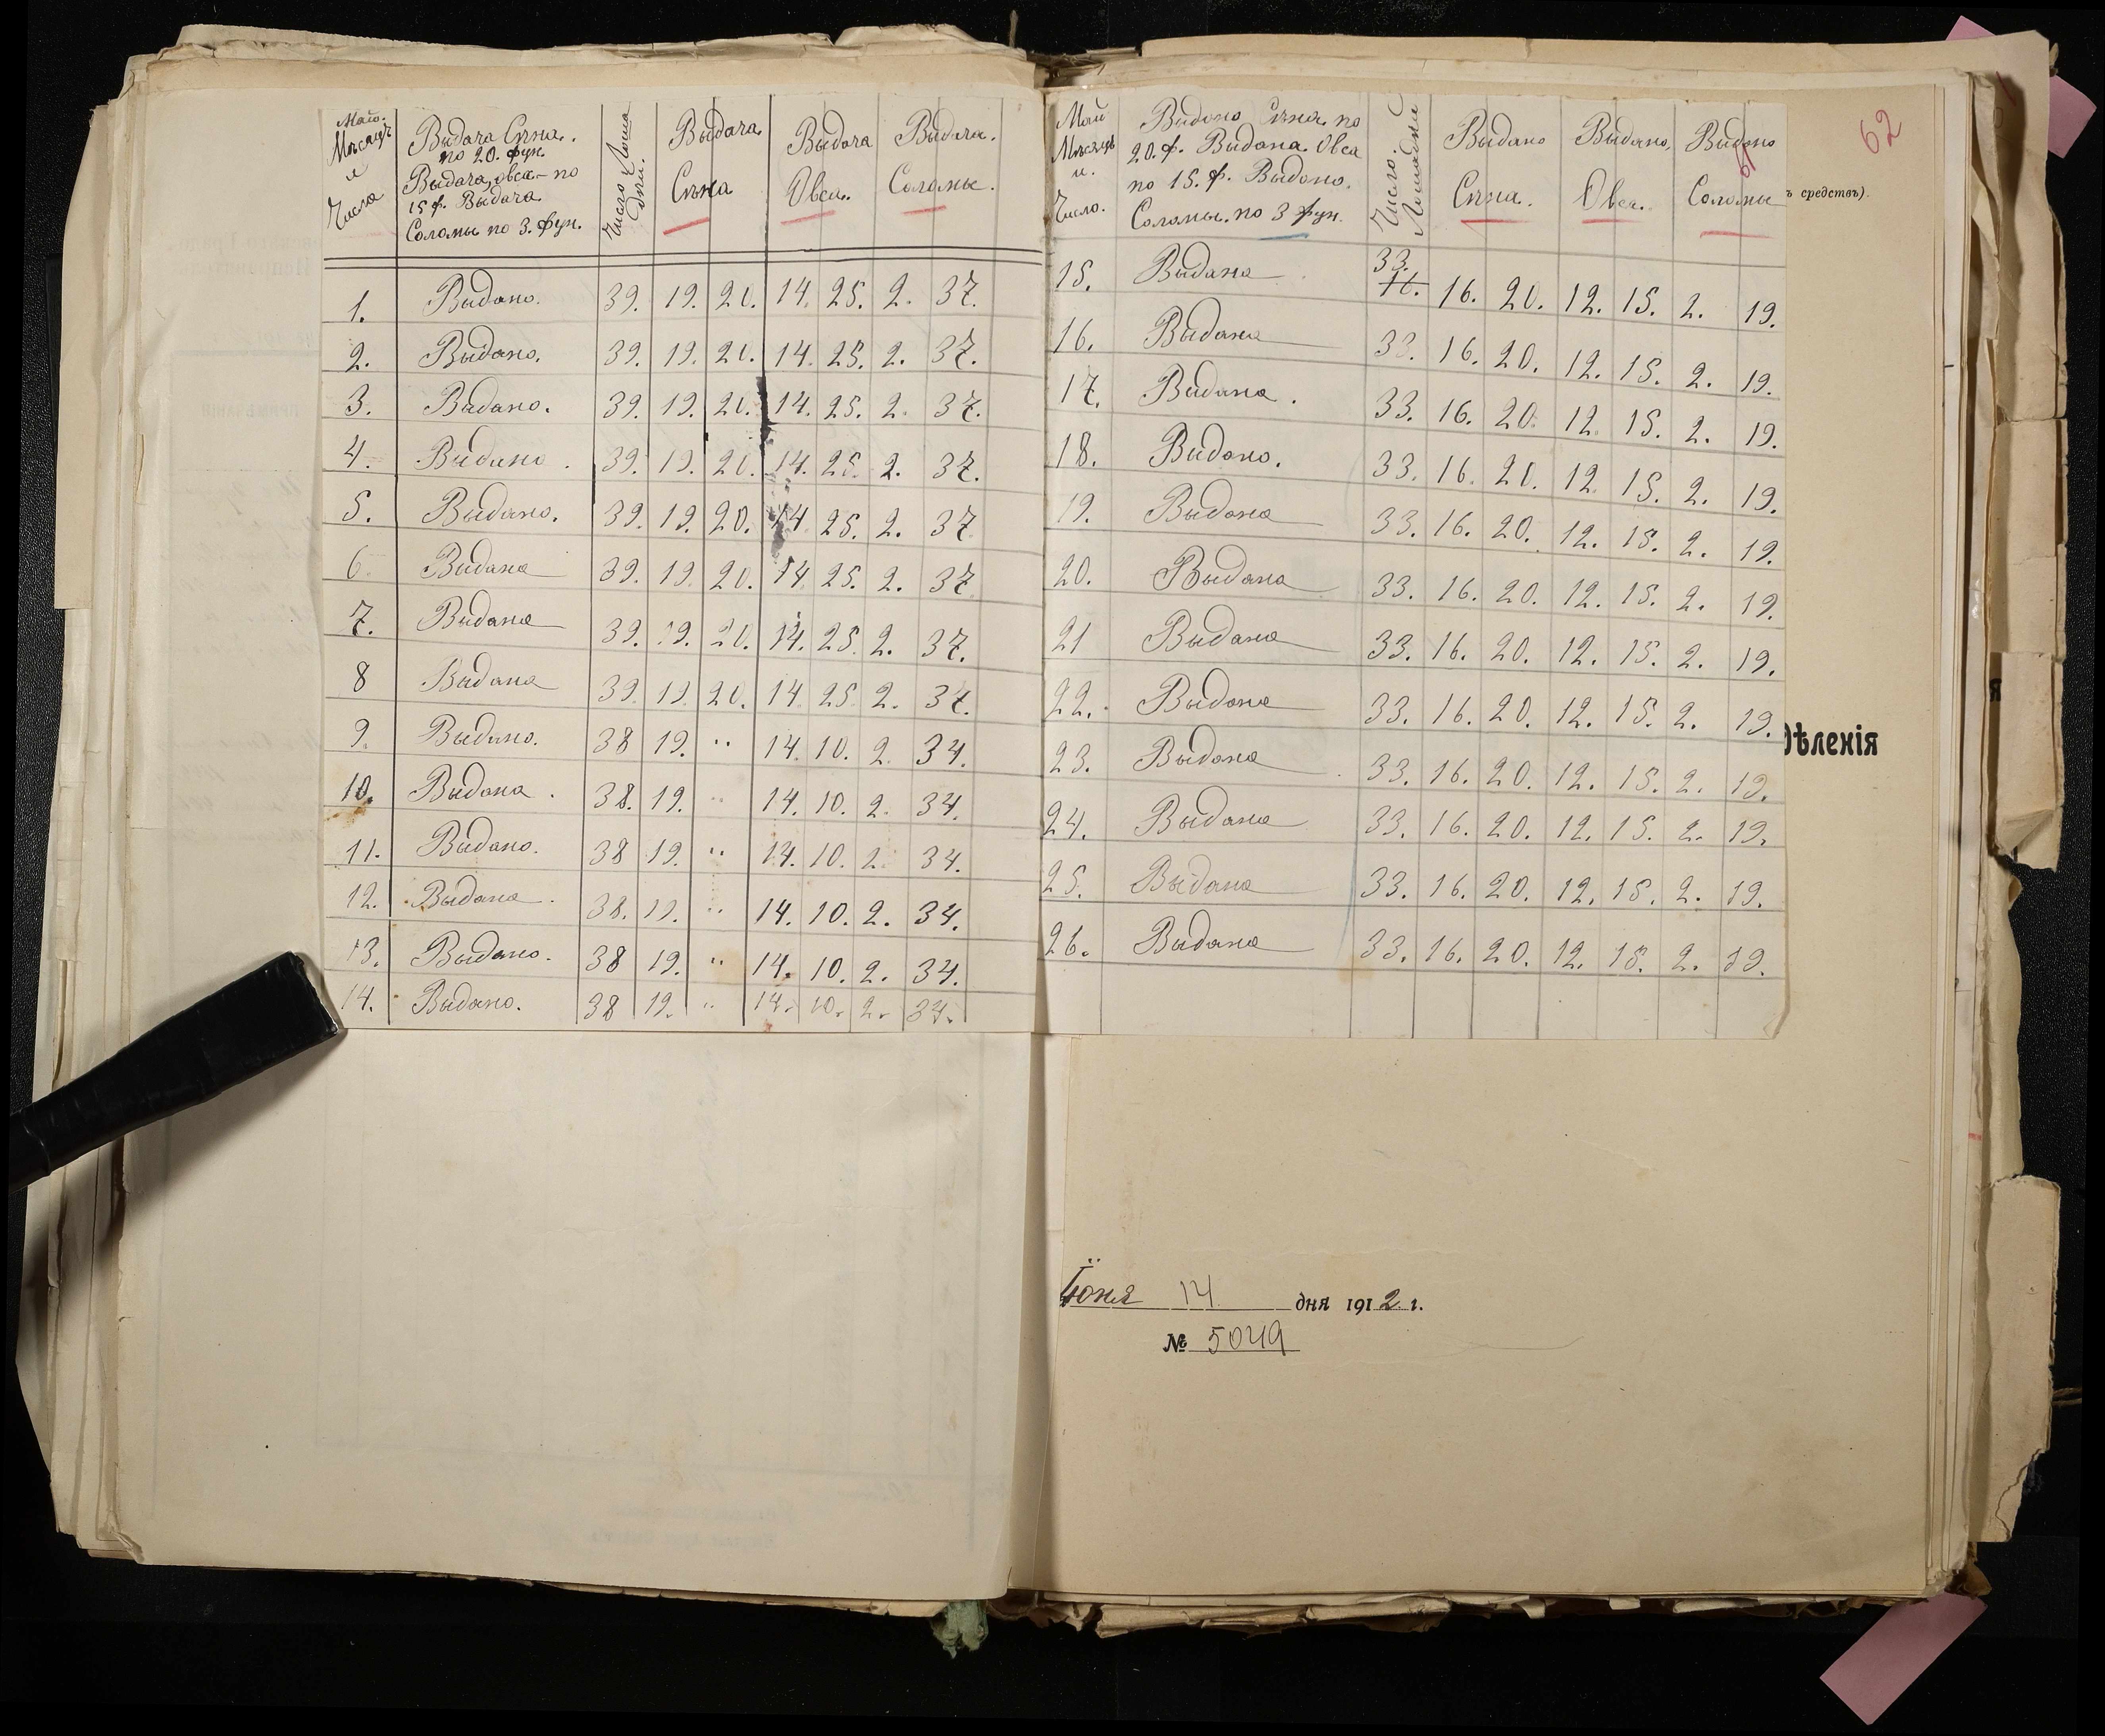 Маю.
Мѣсяцъ
и
Числа
Выдача Сѣна.
по 20. фун.
Выдача, овса - по
15 ф. Выдача
Соломы по 3. Фун.
Число Лоша
дѣй.
Выдача
Сѣна
Выдача
Овса.
Выдача.
Соломы.
1. Выдано. 39. 19. 20. 14. 25. 2. 37.
2. Выдано. 39. 19. 20. 14. 25. 2. 37.
3. Выдано. 39. 19. 20. 14. 25. 2. 37.
4. Выдано. 39. 19. 20. 14. 25. 2. 37.
5. Выдано. 39. 19. 20. 14. 25. 2. 37
6 Выдана 39. 19. 20. 14. 25. 2. 37
7. Выдана 39. 19. 20. 14. 25. 2. 37.
8 Выдана 39. 19. 20. 14. 25 2. 37.
9. Выдано. 38 19. " 14. 10. 2. 34.
10. Выдана. 38. 19. " 14. 10. 2. 34.
11. Выдано. 38 19. " 14. 10. 2. 34.
12. Выдана. 38. 19. " 14. 10. 2. 34.
13. Выдано. 38 19. " 14. 10. 2. 34.
14. Выдано. 38 19. " 14. 10. 2. 34.
Май
Мѣсяцъ
и.
Число.
Выдано Сѣна. по
20. ф. Выдана. Овса
по 15. ф. Выдано.
Соломы. по 3 фун.
Число.
Лошадѣй
Выдано
Сѣна.
Выдано,
Овса.
Выдано
Соломы
61
62
ъ средствъ).
15. Выдана 33. 16. 16. 20. 12. 15. 2. 19.
16. Выдана 33. 16. 20. 12. 15. 2. 19.
17. Выдана. 33. 16. 20. 12. 15. 2. 19.
18. Выдано. 33. 16. 20. 12. 15. 2. 19.
19. Выдана 33. 16. 20. 12. 15. 2. 19.
20. Выдана 33. 16. 20. 12. 15. 2. 19.
21 Выдана 33. 16. 20. 12. 15. 2. 19.
22. Выдана 33. 16. 20. 12. 15. 2. 19.
дѣленія
23. Выдана 33. 16. 20. 12. 15. 2. 19.
24. Выдана 33. 16. 20. 12. 15. 2. 19.
25. Выдана 33. 16. 20. 12. 15. 2. 19.
26. Выдана 33. 16. 20. 12. 15. 2. 19.
Їюня 14 дня 1912 г.
№ 5049